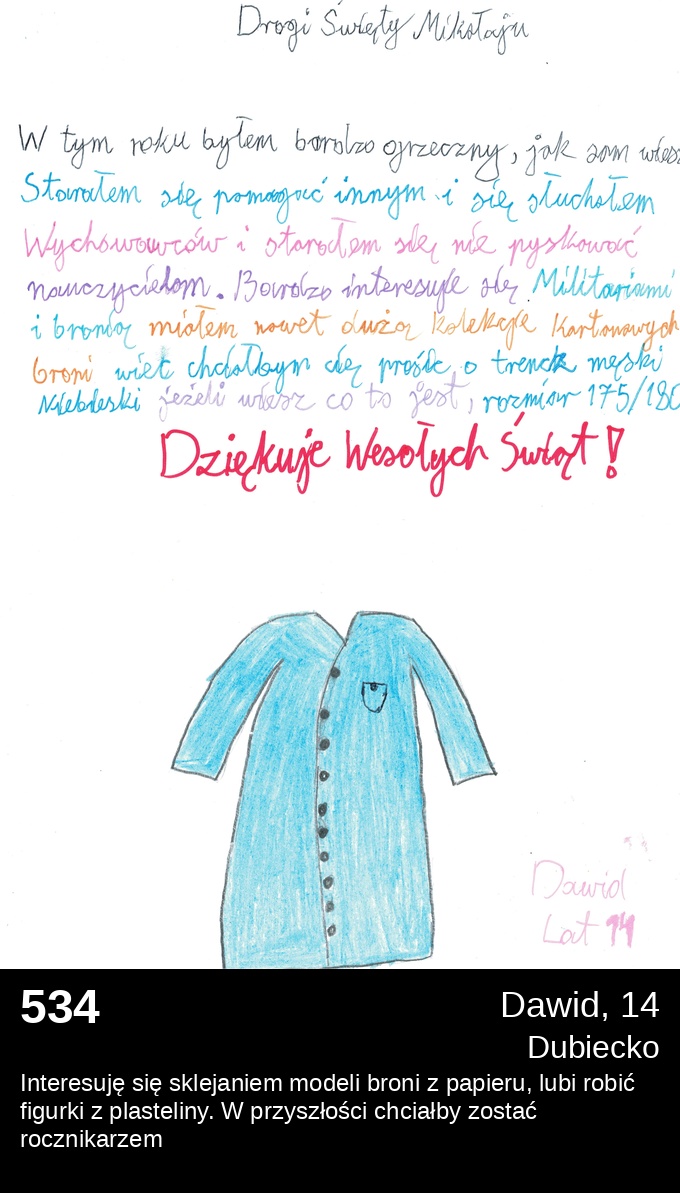 Drogi Święty Mikołaju
W tym roku byłem bardzo grzeczny, jak sam wiesz
Starałem się pomagać innym i się słuchałem
Wychowawców i starałem się nie pyskować
nauczycielom. Bardzo interesuje się Militariami
i bronią miałem nawet dużą kolekcje Kartonowych
broni wiec chciałbym cię prosić o trencz męski
Niebieski jeżeli wiesz co to jest, rozmiar 175/180
Dziękuje Wesołych Świąt!
Dawid
Lat 14
534
Dawid, 14
Dubiecko
Interesuję się sklejaniem modeli broni z papieru, lubi robić
figurki z plasteliny. W przyszłości chciałby zostać
rocznikarzem